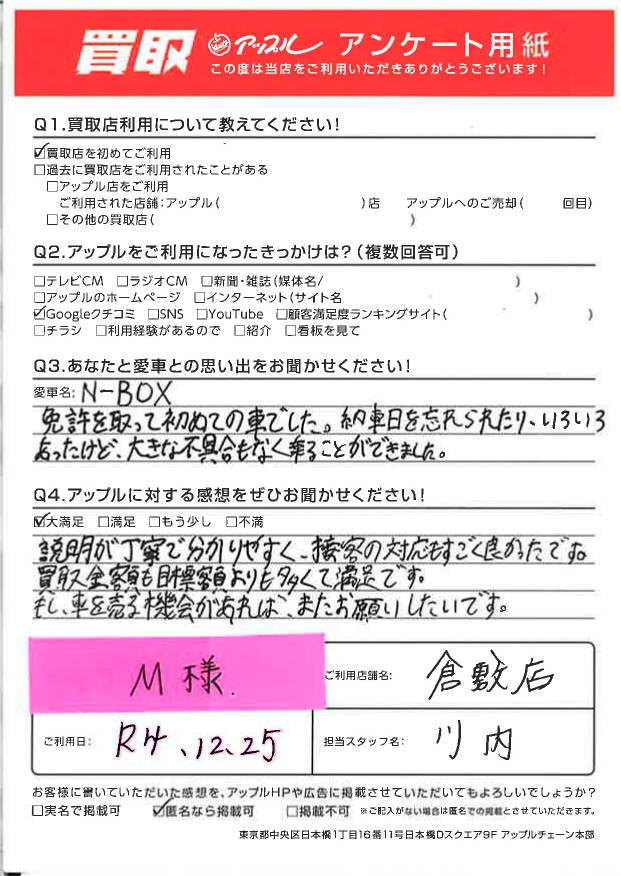 買取 アップル アンケート用紙
この度は当店をご利用いただきありがとうございます！
Q1.買取店利用について教えてください！
☑買取店を初めてご利用
□過去に買取店をご利用されたことがある
□アップル店をご利用
ご利用された店舗：アップル（ ）店 アップルへのご売却（ 回目）
□その他の買取店（ ）
Q2.アップルをご利用になったきっかけは？（複数回答可）
□テレビCM □ラジオCM □新聞・雑誌（媒体名/ ）
□アップルのホームページ □インターネット（サイト名 ）
☑Googleクチコミ □SNS □YouTube □顧客満足度ランキングサイト（ ）
□チラシ □利用経験があるので □紹介 □看板を見て
Q3.あなたと愛車との思い出をお聞かせください！
愛車名：N-BOX
免許を取って初めての車でした。納車日を忘れられたり、いろいろ
あったけど、大きな不具合もなく乗ることができました。
Q4.アップルに対する感想をぜひお聞かせください！
☑大満足 □満足 □もう少し □不満
説明が丁寧で分かりやすく、接客の対応もすごく良かったです。
買取金額も目標額よりも多くて満足です。
もし、車を売る機会があれば、またお願いしたいです。
M様.
ご利用店舗名： 倉敷店
ご利用日： R4、12、25
担当スタッフ名： 川内
お客様に書いていただいた感想を、アップルHPや広告に掲載させていただいてもよろしいでしょうか？
□実名で掲載可 ☑匿名なら掲載可 □掲載不可 ※ご記入がない場合は匿名での掲載とさせていただきます。
東京都中央区日本橋1丁目16番11号日本橋Dスクエア9F アップルチェーン本部